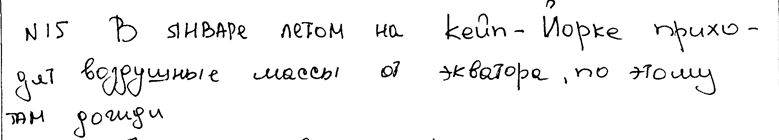 N15 В январе летом на Кейп-Йорке прихо-
дят воздушные массы от экватора, по этому
там дожди